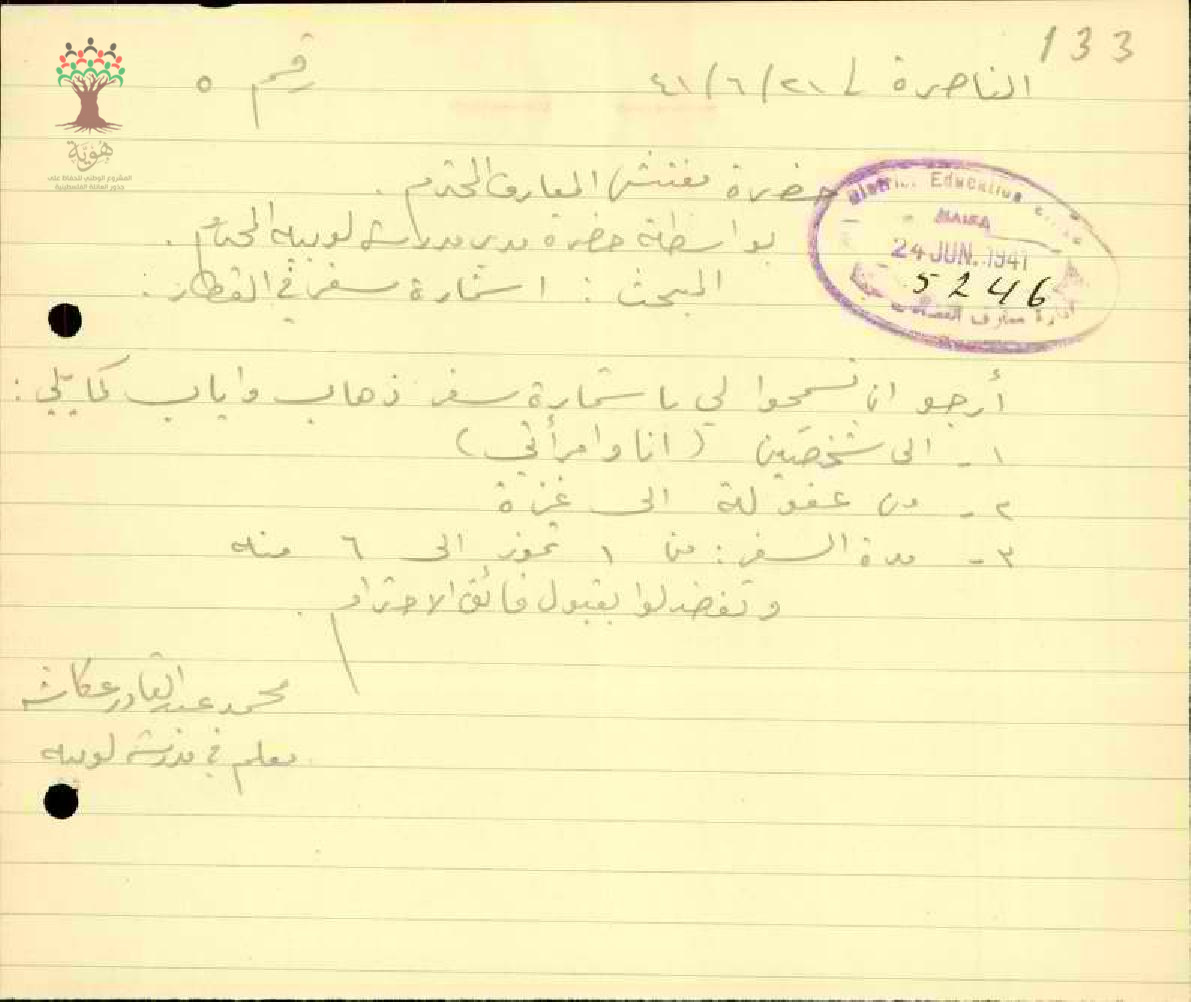 133
الناصرة في ٢١/٦/٤١
رقم ٥
هوية
المشروع الوطني للحفاظ على
جذور العائلة الفلسطينية
حضرة مفتش المعارف المحترم .
بواسطة حضرة مدير مدرسة لوبيه المحترم .
المبحث : استمارة سفر في القطار .
District Education
HAIFA
24 JUN. 1941
5246
ادارة معارف
أرجو ان تسمحوا لي باستمارة سفر ذهاب واياب كما يلي :
١ - الى شخصين ( انا وامرأتي )
٢ - من عفولة الى غزة
٣ - مدة السفر : من ١ تموز الى ٦ منه
وتفضلوا بقبول فائق الاحترام .
محمد عبد القادر عكاشه
معلم في مدرسة لوبيه